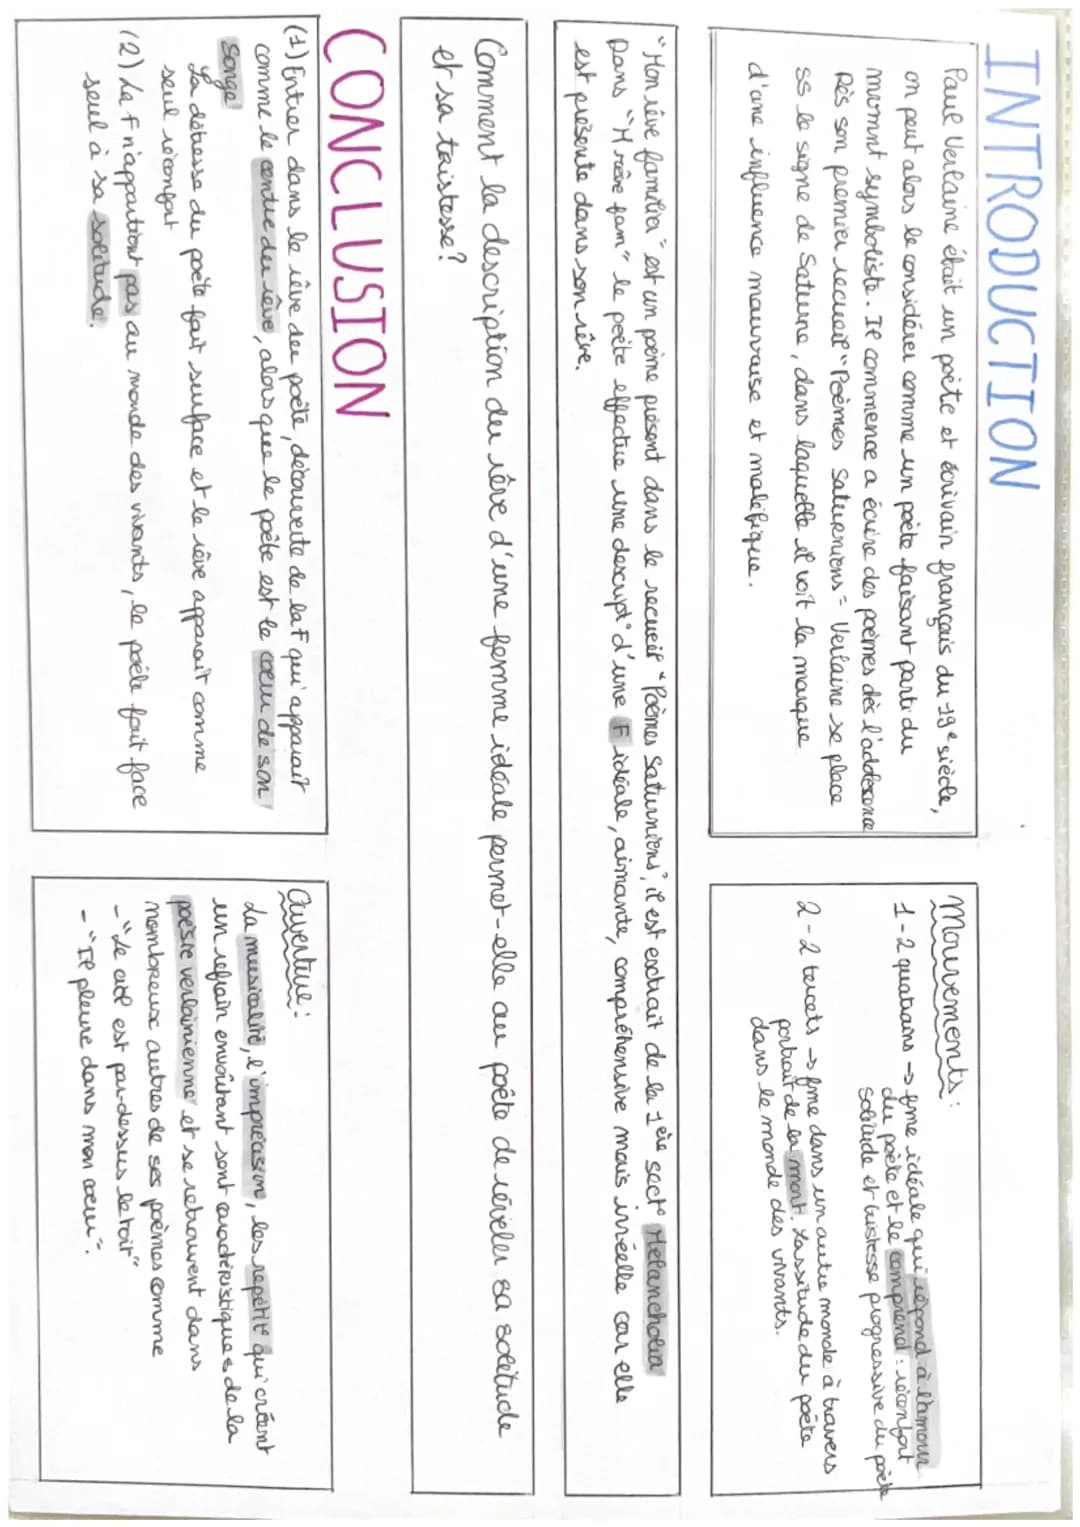 INTRODUCTION
Paul Verlaine était un poète et écrivain français du 19e siècle,
on peut alors le considérer comme un poète faisant parti du
mvmnt symboliste. Il commence a écrire des poèmes dès l'addescence
Dès son premier recueil "Poèmes Saturniens" Verlaine se place
ss le signe de Saturne, dans laquelle il voit la marque
d'une influence mauvaise et maléfique.
Mouvements :
1 - 2 quatrains → fme idéale qui répond à l'amour
du poète et le comprend : réconfort
solitude et tristesse progressive du poète
2 - 2 tercets → fme dans un autre monde à travers
portrait de la mort. Lassitude du poète
dans le monde des vivants.
"Mon rêve familier" est un poème présent dans le recueil "Poèmes Saturniens", il est extrait de la 1ère sect° Melancholia
Dans "M rêve fam" le poète effectue une descript° d'une F idéale, aimante, compréhensive mais irréelle car elle
est présente dans son rêve.
Comment la description du rêve d'une femme idéale permet-elle au poète de révéler sa solitude
et sa tristesse ?
CONCLUSION
(1) Entrer dans le rêve du poète, découverte de la F qui apparait
comme le centre du rêve, alors que le poète est le cœur de son
songe
La détresse du poète fait surface et le rêve apparait comme
seul réconfort
(2) La F n'appartient pas au monde des vivants, le poète fait face
seul à sa solitude.
Ouverture :
La musicalité, l'imprécision, les repetit° qui créent
un refrain envoûtant sont caractéristiques de la
poésie verlainienne et se retrouvent dans
nombreux autres de ses poèmes comme
- "Le ciel est par-dessus le toit"
- "Il pleure dans mon cœur".